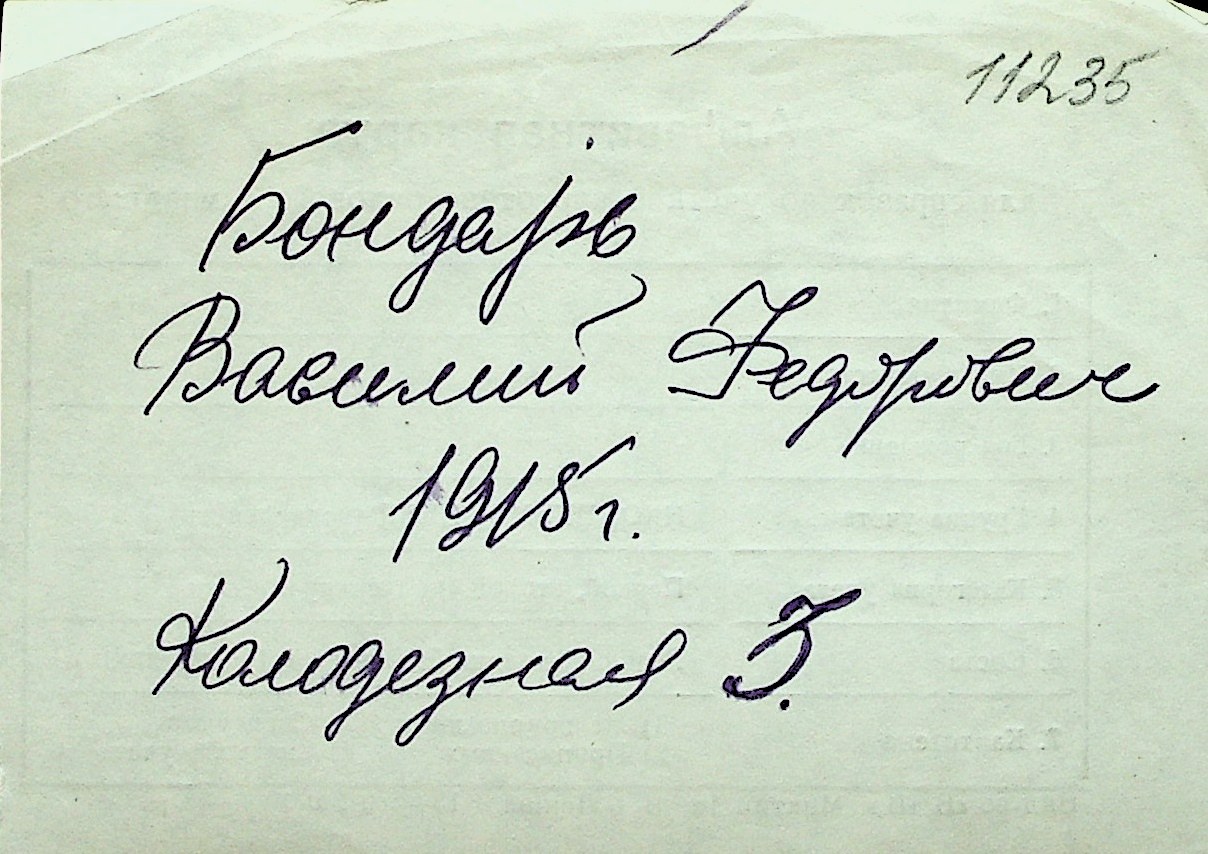 11235
Бондарь
Василий Федорович
1915 г.
Колодезная 3.